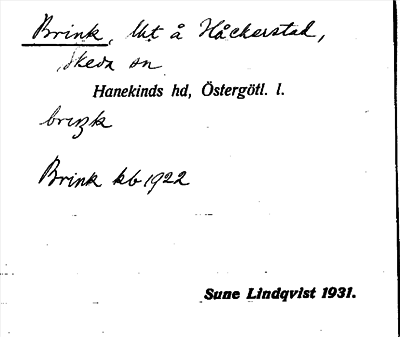 Brink, lht å Håckerstad,
Skeda sn
Hanekinds hd, Östergötl. l.
briŋk
Brink kb 1922
Sune Lindqvist 1931.